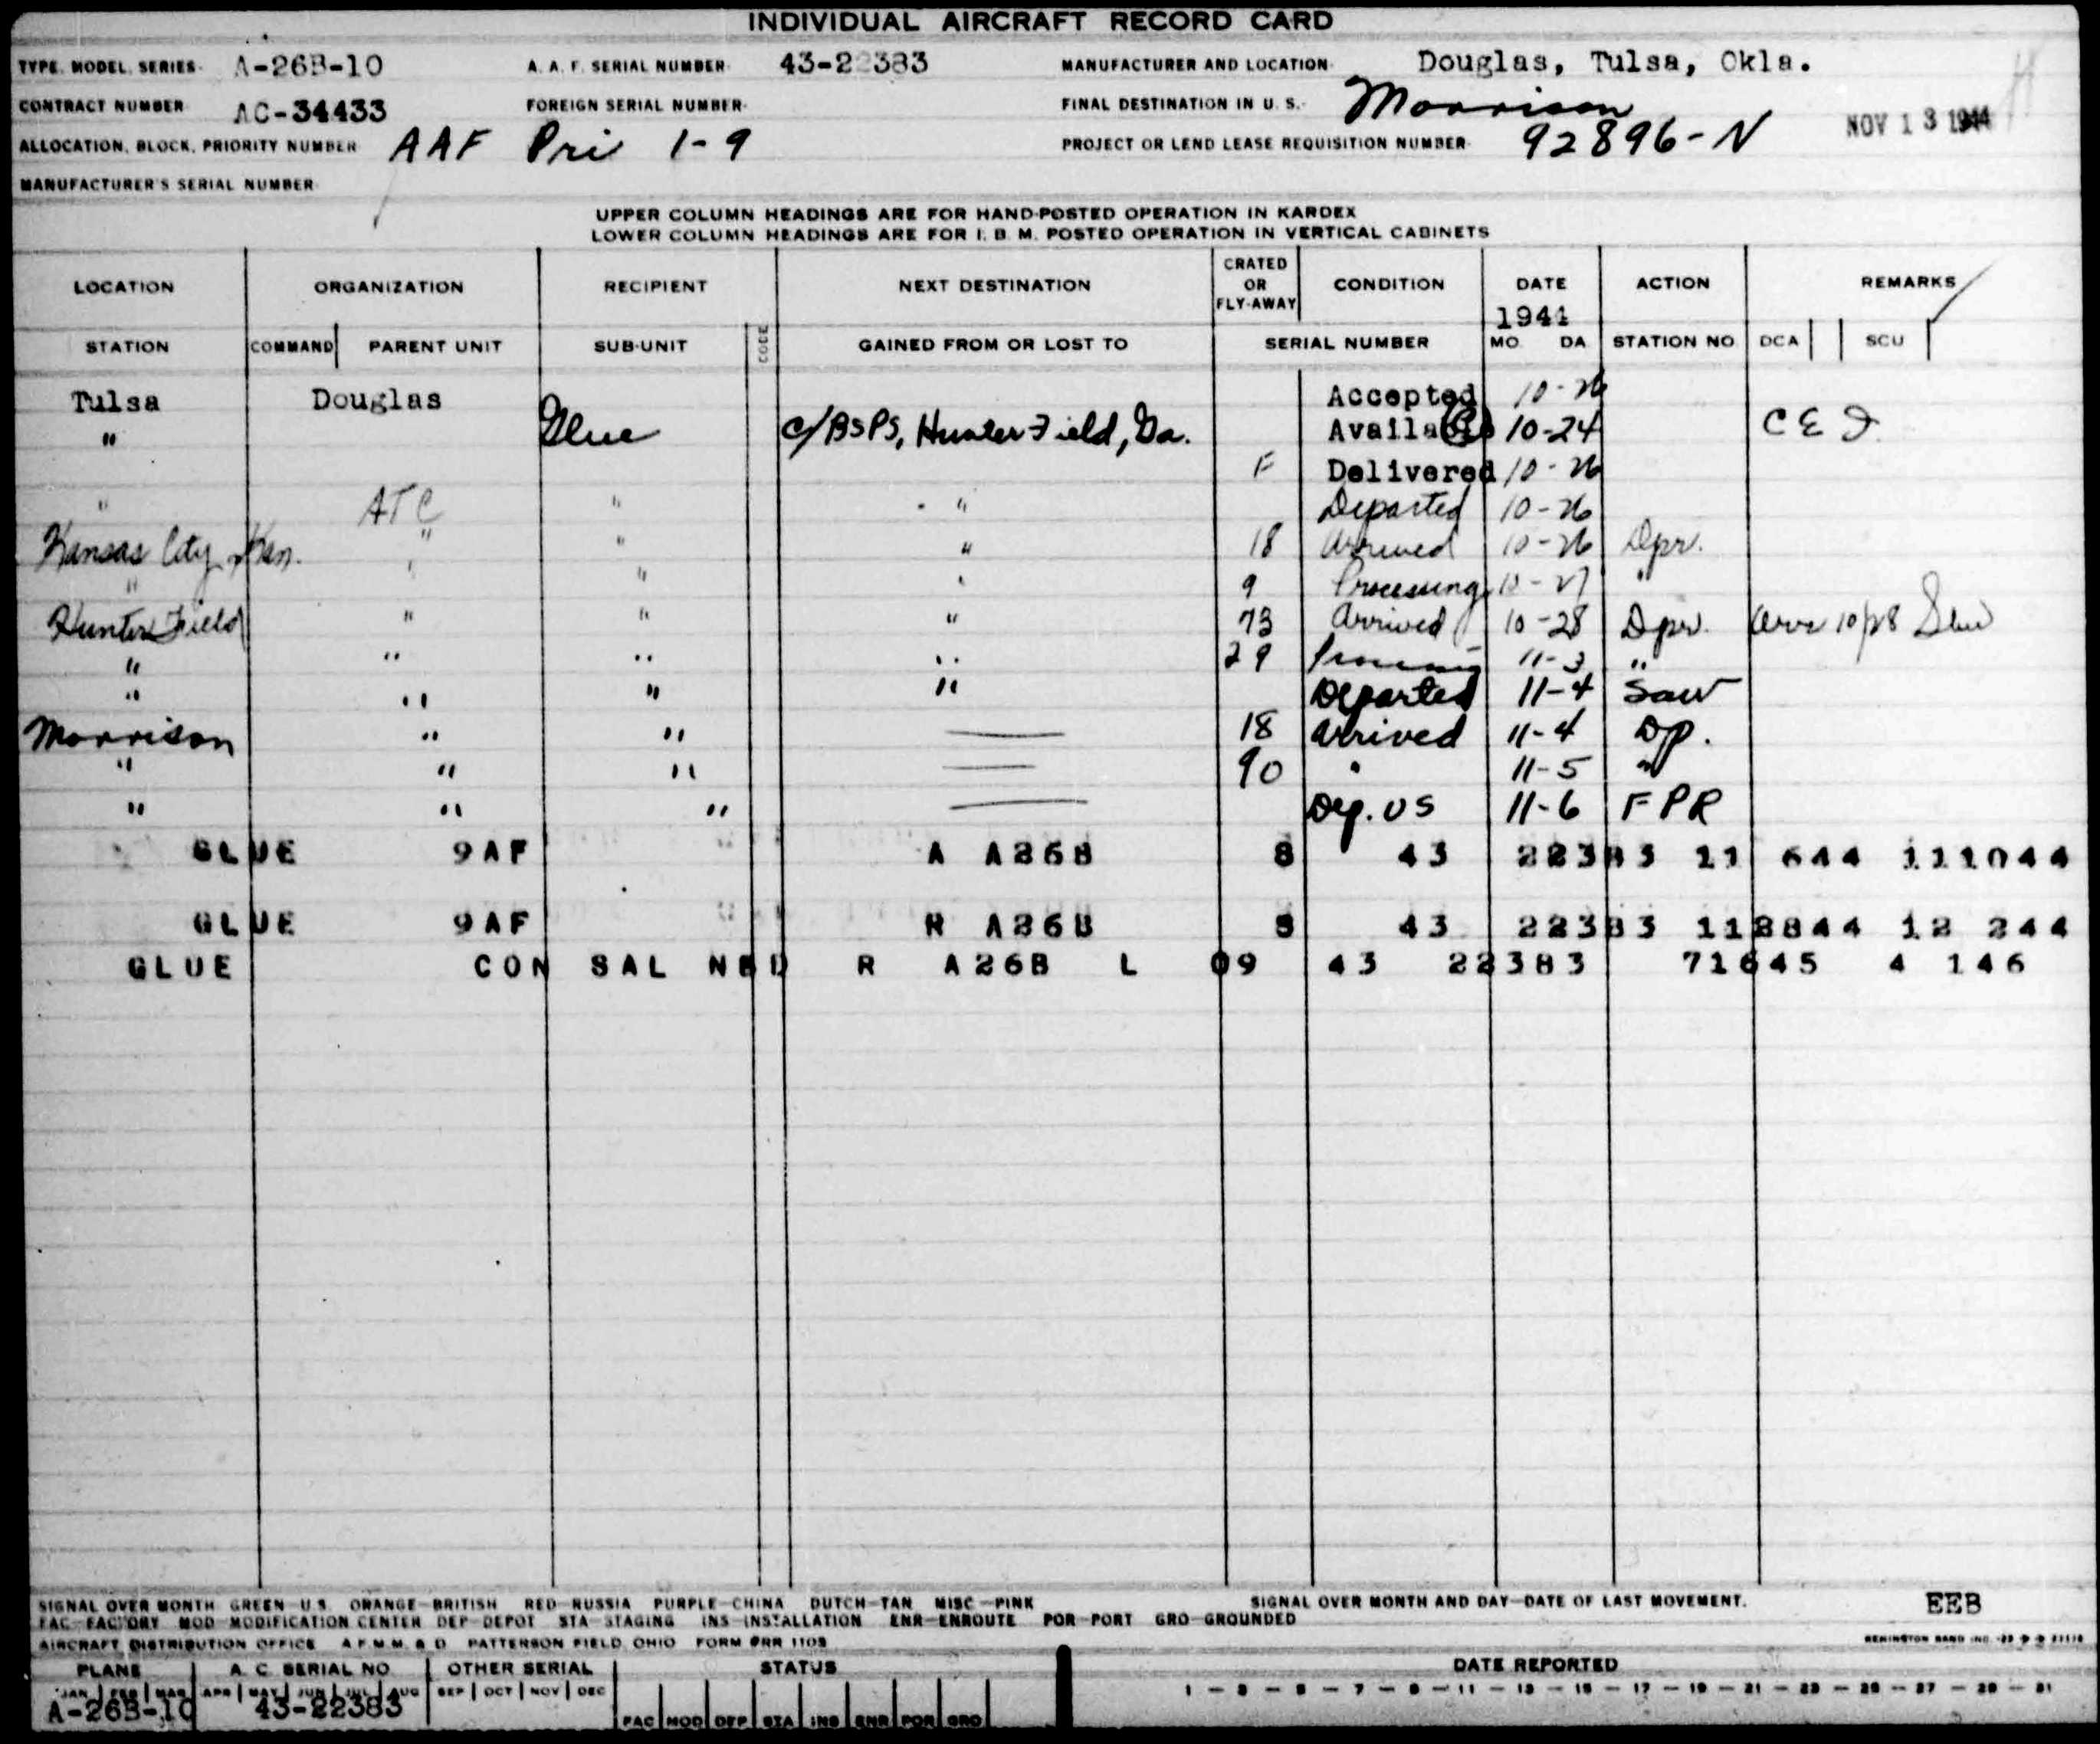 INDIVIDUAL AIRCRAFT RECORD CARD
TYPE, MODEL, SERIES A-26B-10 A. A. F. SERIAL NUMBER 43-22383 MANUFACTURER AND LOCATION Douglas, Tulsa, Okla.
CONTRACT NUMBER AC-34433 FOREIGN SERIAL NUMBER FINAL DESTINATION IN U. S. Morrison NOV 13 1944
ALLOCATION, BLOCK, PRIORITY NUMBER AAF Pri 1-9 PROJECT OR LEND LEASE REQUISITION NUMBER 92896-N
MANUFACTURER'S SERIAL NUMBER
UPPER COLUMN HEADINGS ARE FOR HAND-POSTED OPERATION IN KARDEX
LOWER COLUMN HEADINGS ARE FOR I. B. M. POSTED OPERATION IN VERTICAL CABINETS
LOCATION ORGANIZATION RECIPIENT NEXT DESTINATION CRATED OR FLY-AWAY CONDITION DATE 1944 ACTION REMARKS
STATION COMMAND PARENT UNIT SUB-UNIT CODE GAINED FROM OR LOST TO SERIAL NUMBER MO. DA STATION NO. DCA SCU
Tulsa Douglas Accepted 10-26
" Glue c/BSPS, Hunter Field, Ga. Availa 10-24
F Delivered 10-26
" ATC " " Departed 10-26
Kansas City, Kan. " " " 18 Arrived 10-26 Dpr.
" " " " 9 Processing 10-27 "
Hunter Field " " " 73 Arrived 10-28 Dpr. 10/28
" " " " 29 11-3 "
" " " " Departed 11-4 Saw
Morrison " " — 18 Arrived 11-4 Dp.
" " " — 90 " 11-5 "
" " " — Dep. US 11-6 FPR
GLUE 9AF A A26B 8 43 22383 11 644 111044
GLUE 9AF R A26B 8 43 22383 112844 12 244
GLUE CON SAL NBD R A26B L 09 43 22383 71645 4 146
SIGNAL OVER MONTH GREEN U.S. ORANGE-BRITISH RED-RUSSIA PURPLE-CHINA DUTCH-TAN MISC-PINK SIGNAL OVER MONTH AND DAY-DATE OF LAST MOVEMENT. EEB
FAC-FACTORY MOD-MODIFICATION CENTER DEP-DEPOT STA-STAGING INS-INSTALLATION ENR-ENROUTE POR-PORT GRO-GROUNDED
AIRCRAFT DISTRIBUTION OFFICE A.F.M.M. & D. PATTERSON FIELD, OHIO FORM REMINGTON RAND INC.
PLANE A. C. SERIAL NO. OTHER SERIAL STATUS DATE REPORTED
JAN FEB MAR APR MAY JUN JUL AUG SEP OCT NOV DEC 1-3-5-7-9-11-13-15-17-19-21-23-25-27-29-31
A-26B-10 43-22383 FAC MOD DEP STA INS ENR POR GRO